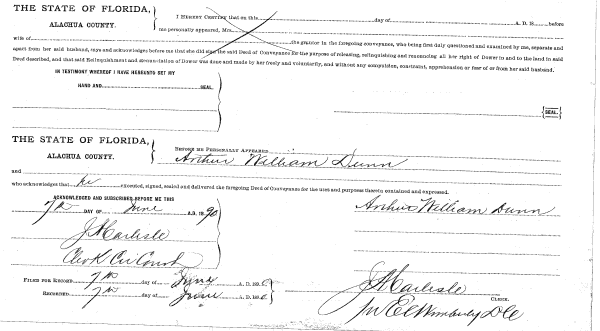 THE STATE OF FLORIDA,
ALACHUA COUNTY.
I HEREBY CERTIFY that on this day of A. D. 18 before
me personally appeared, Mrs.
wife of the grantor in the foregoing conveyance, who being first duly questioned and examined by me, separate and
apart from her said husband, says and acknowledges before me that she did sign the said Deed of Conveyance for the purpose of releasing, relinquishing and renouncing all her right of Dower in and to the land in said
Deed described, and that said Relinquishment and Renunciation of Dower was done and made by her freely and voluntarily, and without any compulsion, constraint, apprehension or fear of or from her said husband.
IN TESTIMONY WHEREOF I HAVE HEREUNTO SET MY
HAND AND SEAL.
SEAL.
THE STATE OF FLORIDA,
ALACHUA COUNTY.
BEFORE ME PERSONALLY APPEARED
Arthur William Dunn
and
who acknowledges that he executed, signed, sealed and delivered the foregoing Deed of Conveyance for the uses and purposes therein contained and expressed.
ACKNOWLEDGED AND SUBSCRIBED BEFORE ME THIS
7th DAY OF June A.D. 1890
Arthur William Dunn
J A Carlisle
Clerk Cir Court
FILED FOR RECORD 7th day of June A. D. 18
RECORDED 7th day of June A. D. 18
J A Carlisle
CLERK.
pr E C Wimberly D C